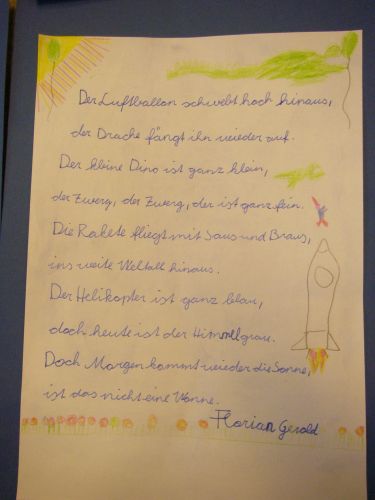 Der Luftballon schwebt hoch hinaus,
der Drache fängt ihn wieder auf.
Der kleine Dino ist ganz klein,
der Zwerg, der Zwerg, der ist ganz fein.
Die Rakete fliegt mit Saus und Braus,
ins weite Weltall hinaus.
Der Helikopter ist ganz blau,
doch heute ist der Himmel grau.
Doch Morgen kommt wieder die Sonne,
ist das nicht eine Wonne.
Florian Gerold